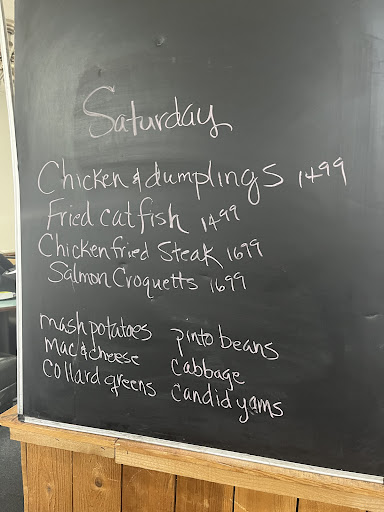 Saturday
Chicken & dumplings 1499
Fried catfish 1499
Chicken fried Steak 1699
Salmon Croquetts 1699
mash potatoes pinto beans
Mac & cheese Cabbage
Collard greens Candid yams